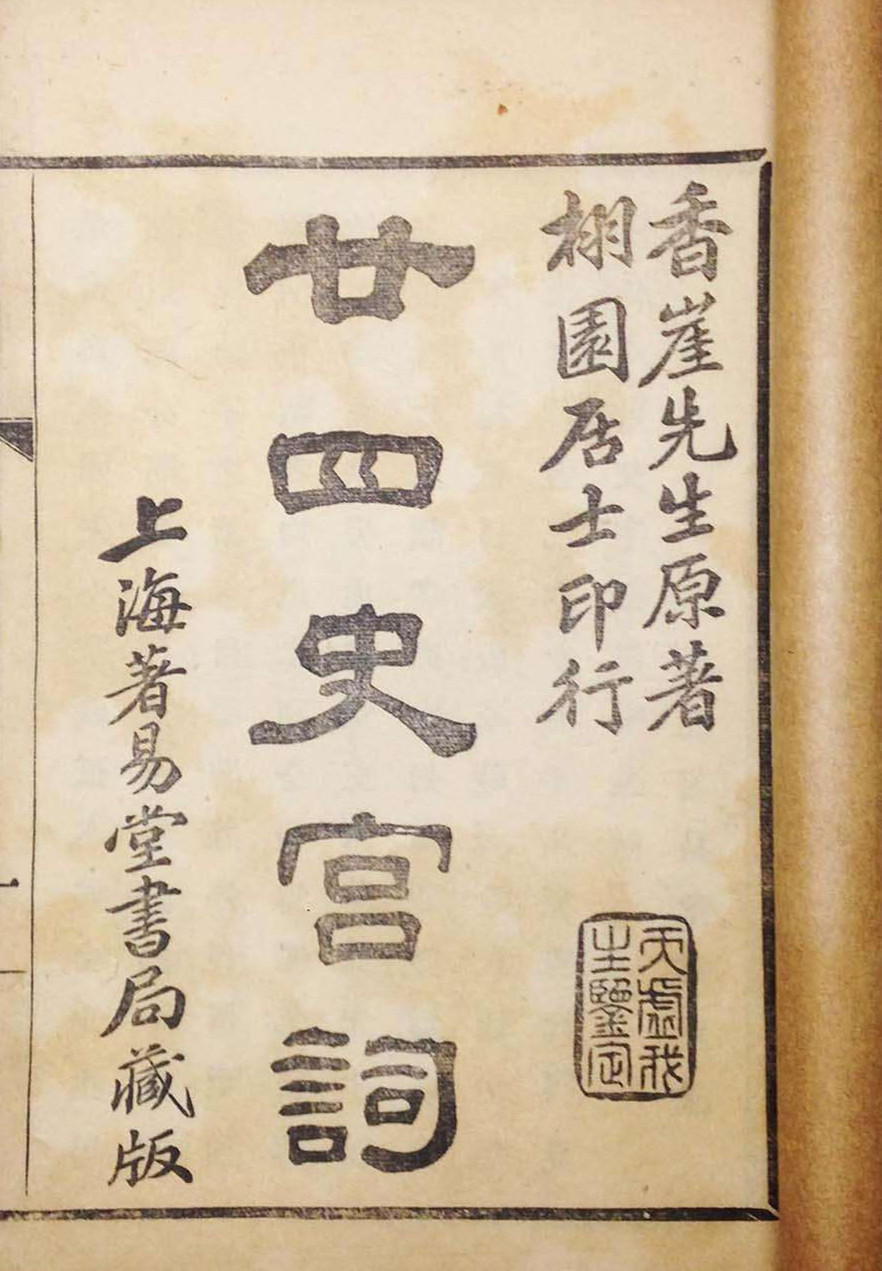 香崖先生原著
栩園居士印行
天虛我生鑒定
廿四史宮詞
上海著易堂書局藏版